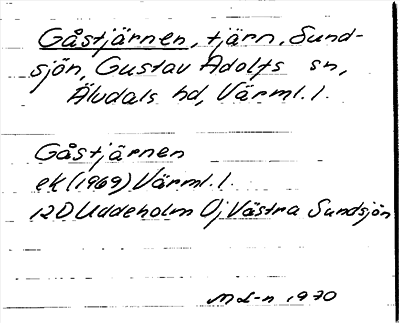 Gåstjärnen, tjärn, Sund-
sjön, Gustav Adolfs sn,
Älvdals hd, Värml. l.
Gåstjärnen
ek (1969) Värml. l.
12 D Uddeholm 0j Västra Sundsjön
ML-n 1970